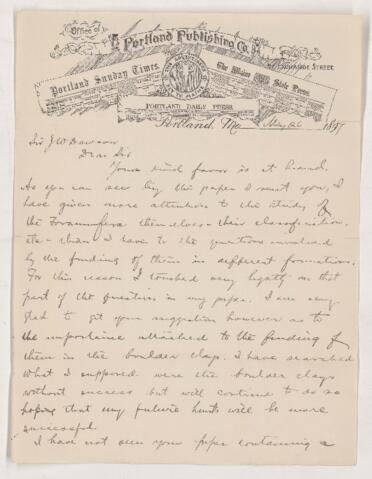 Office of
Portland Publishing Co.
EXCHANGE STREET
Portland Sunday Times.
The Maine State Press.
PORTLAND DAILY PRESS.
Portland, Me May 26 1897
Sir J W Dawson
Dear Sir
Yours kind favor is at hand.
As you can see by the paper I sent you, I
have given more attention to the study of
the Foraminifera themselves - their classification.
etc - than I have to the questions involved
by the finding of them in different formations.
For this reason I touched very lightly on that
part of the question in my paper. I am very
glad to get your suggestion however as to
the importance attached to the finding of
them in the boulder clays. I have searched
what I supposed were the boulder clays
without success but will continue to do so
hoping that my future hunts will be more
successful.
I have not seen your paper containing a